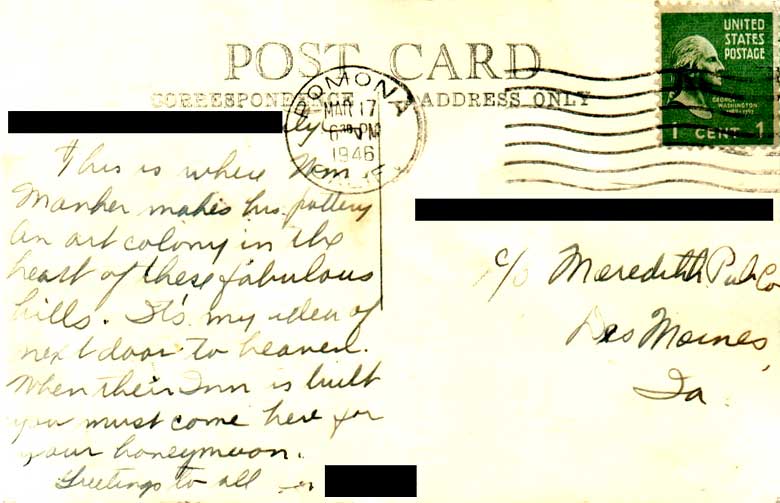 POST CARD
CORRESPONDENCE ADDRESS ONLY
POMONA
MAR 17
6 30 PM
1946
CALIF
UNITED
STATES
POSTAGE
GEORGE
WASHINGTON
1789-1797
1 CENT 1
This is where Wm
Manker makes his pottery
An art colony in the
heart of these fabulous
hills. It's my idea of
next door to heaven.
When their Inn is built
you must come here for
your honeymoon.
Greetings to all
c/o Meredith Pub Co
Des Moines,
Ia.